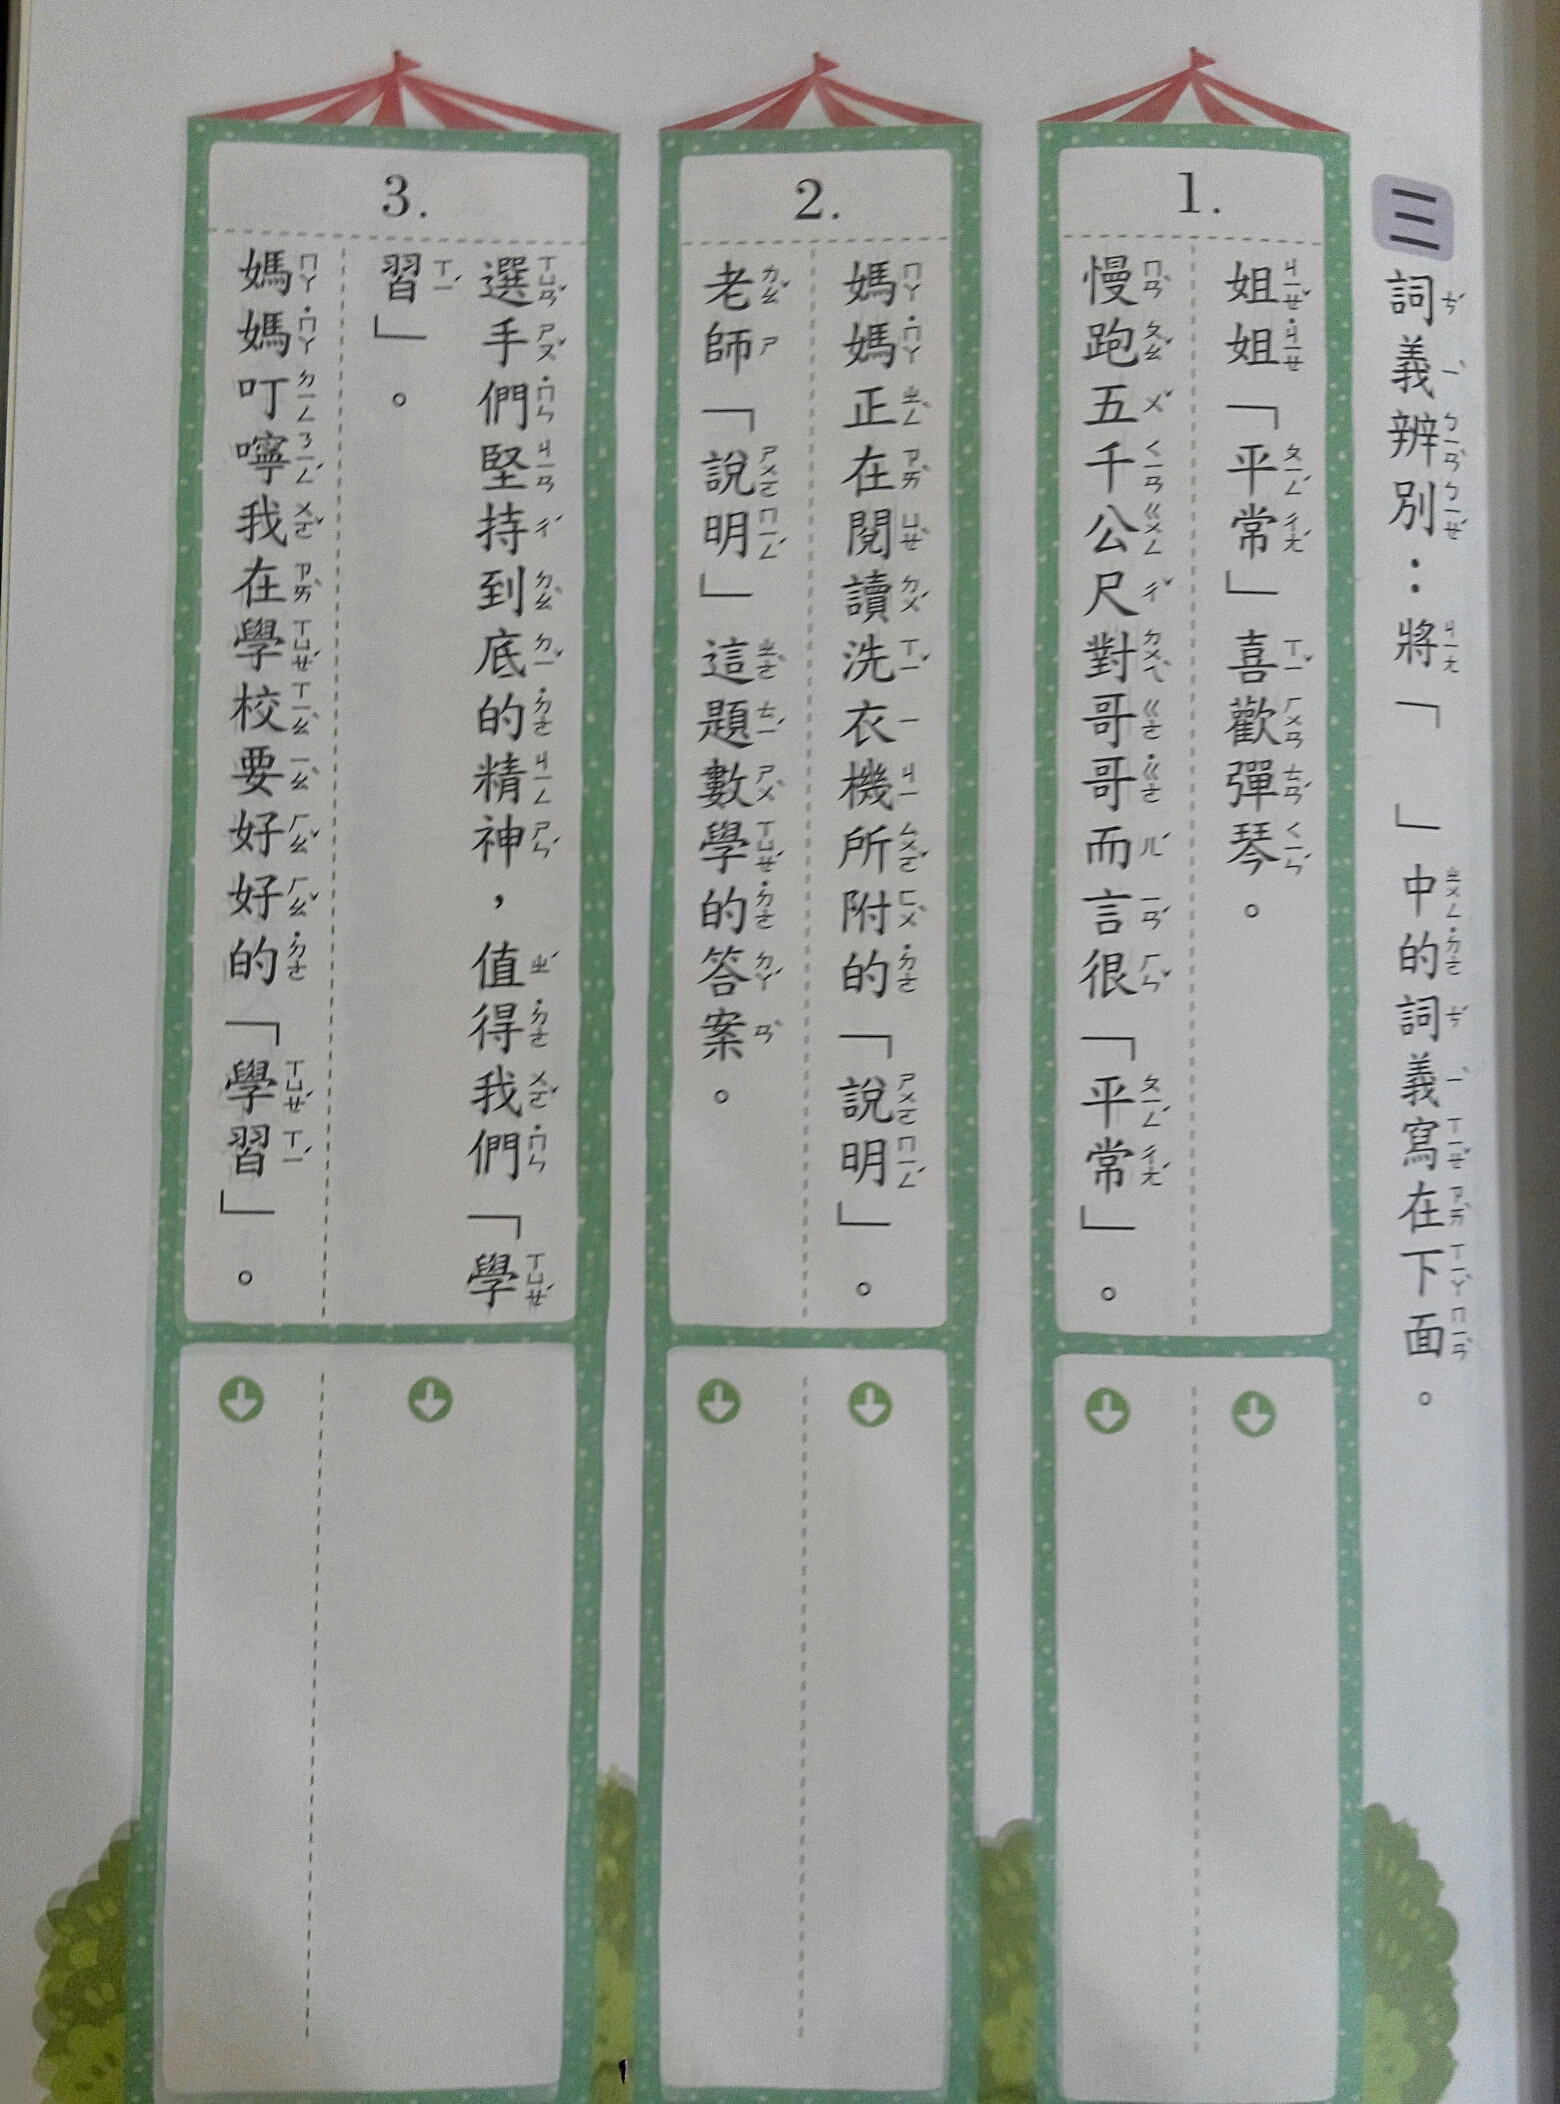 三 詞義辨別：將「　」中的詞義寫在下面。
1.
姐姐「平常」喜歡彈琴。
慢跑五千公尺對哥哥而言很「平常」。
2.
媽媽正在閱讀洗衣機所附的「說明」。
老師「說明」這題數學的答案。
3.
選手們堅持到底的精神，值得我們「學
習」。
媽媽叮嚀我在學校要好好的「學習」。